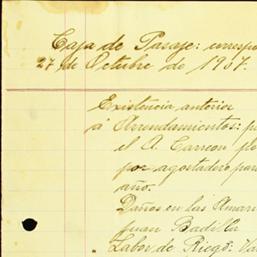 Caja de Pasaje: corresp
27 de Octubre de 1907.
Existencia anterior
á Arrendamientos: p
el A. Carreon
por agostadero para
año.
Daños en las Amar
Juan Badillo
Labor de Riego: Va